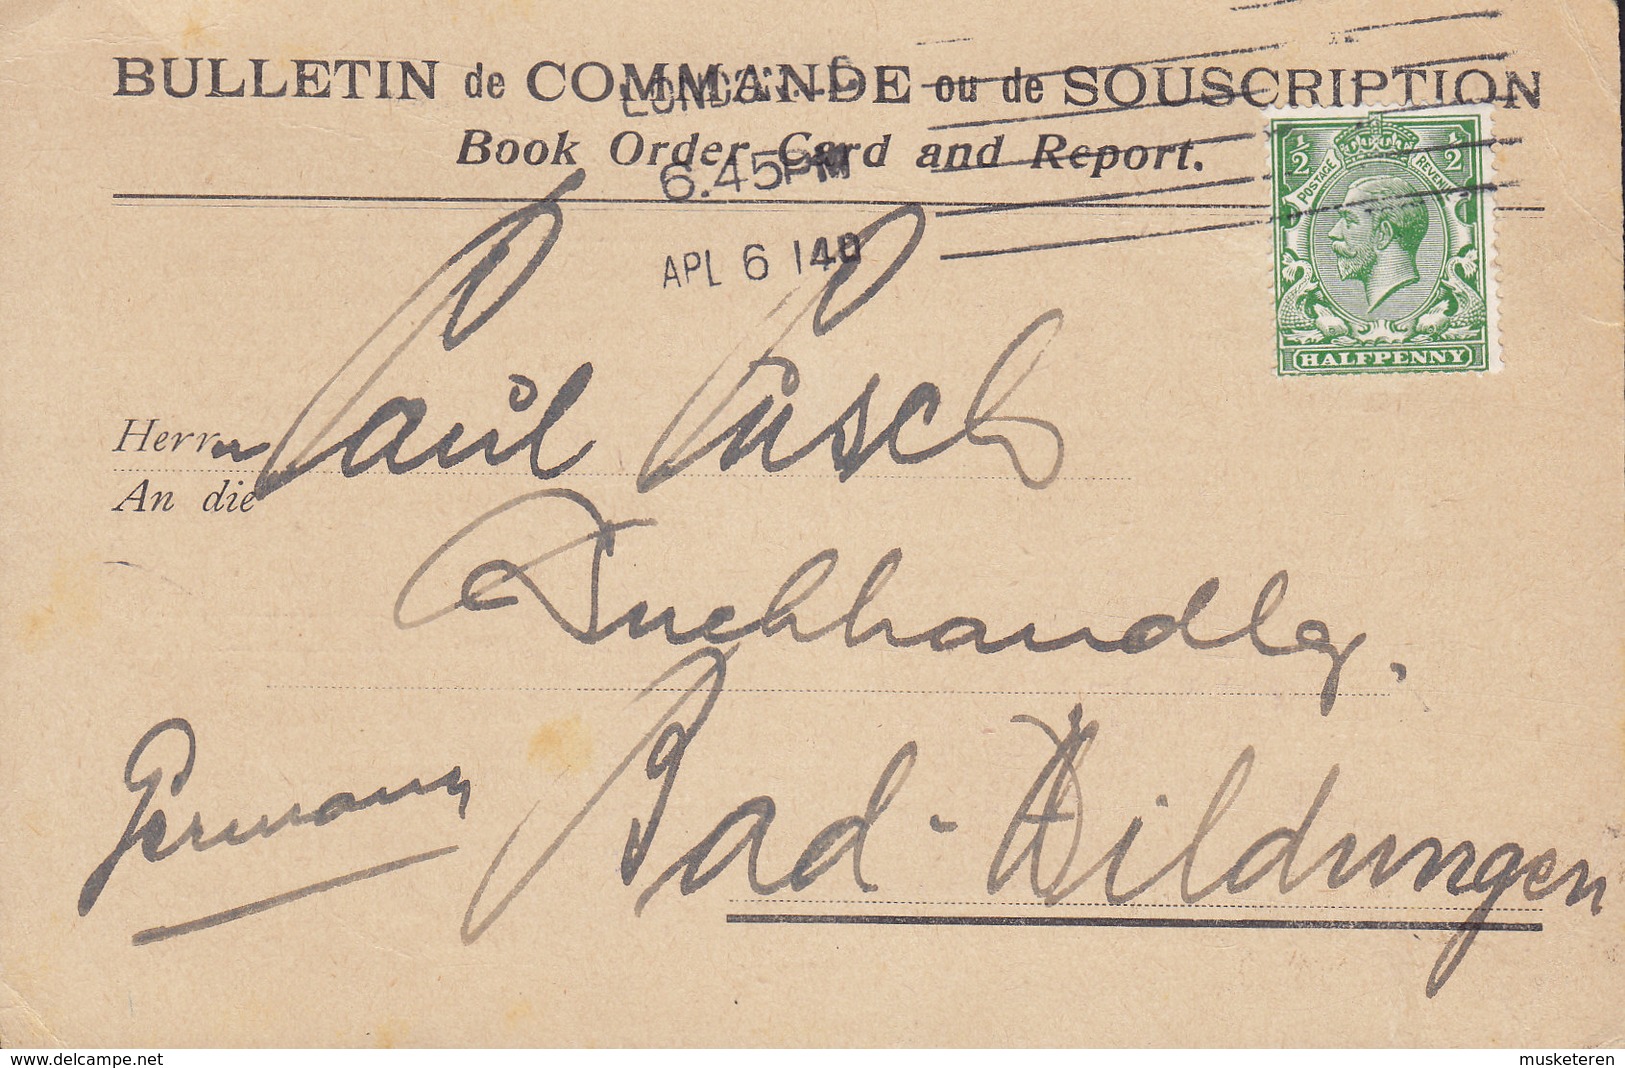 BULLETIN de COMMANDE ou de SOUSCRIPTION
Book Order Card and Report.
6.45PM
APL 6 14
1/2 1/2
POSTAGE REVENUE
HALFPENNY
Herrn Paul Pusch
An die
Buchhandlg.
Germany
Bad-Wildungen
www.delcampe.net
musketeren